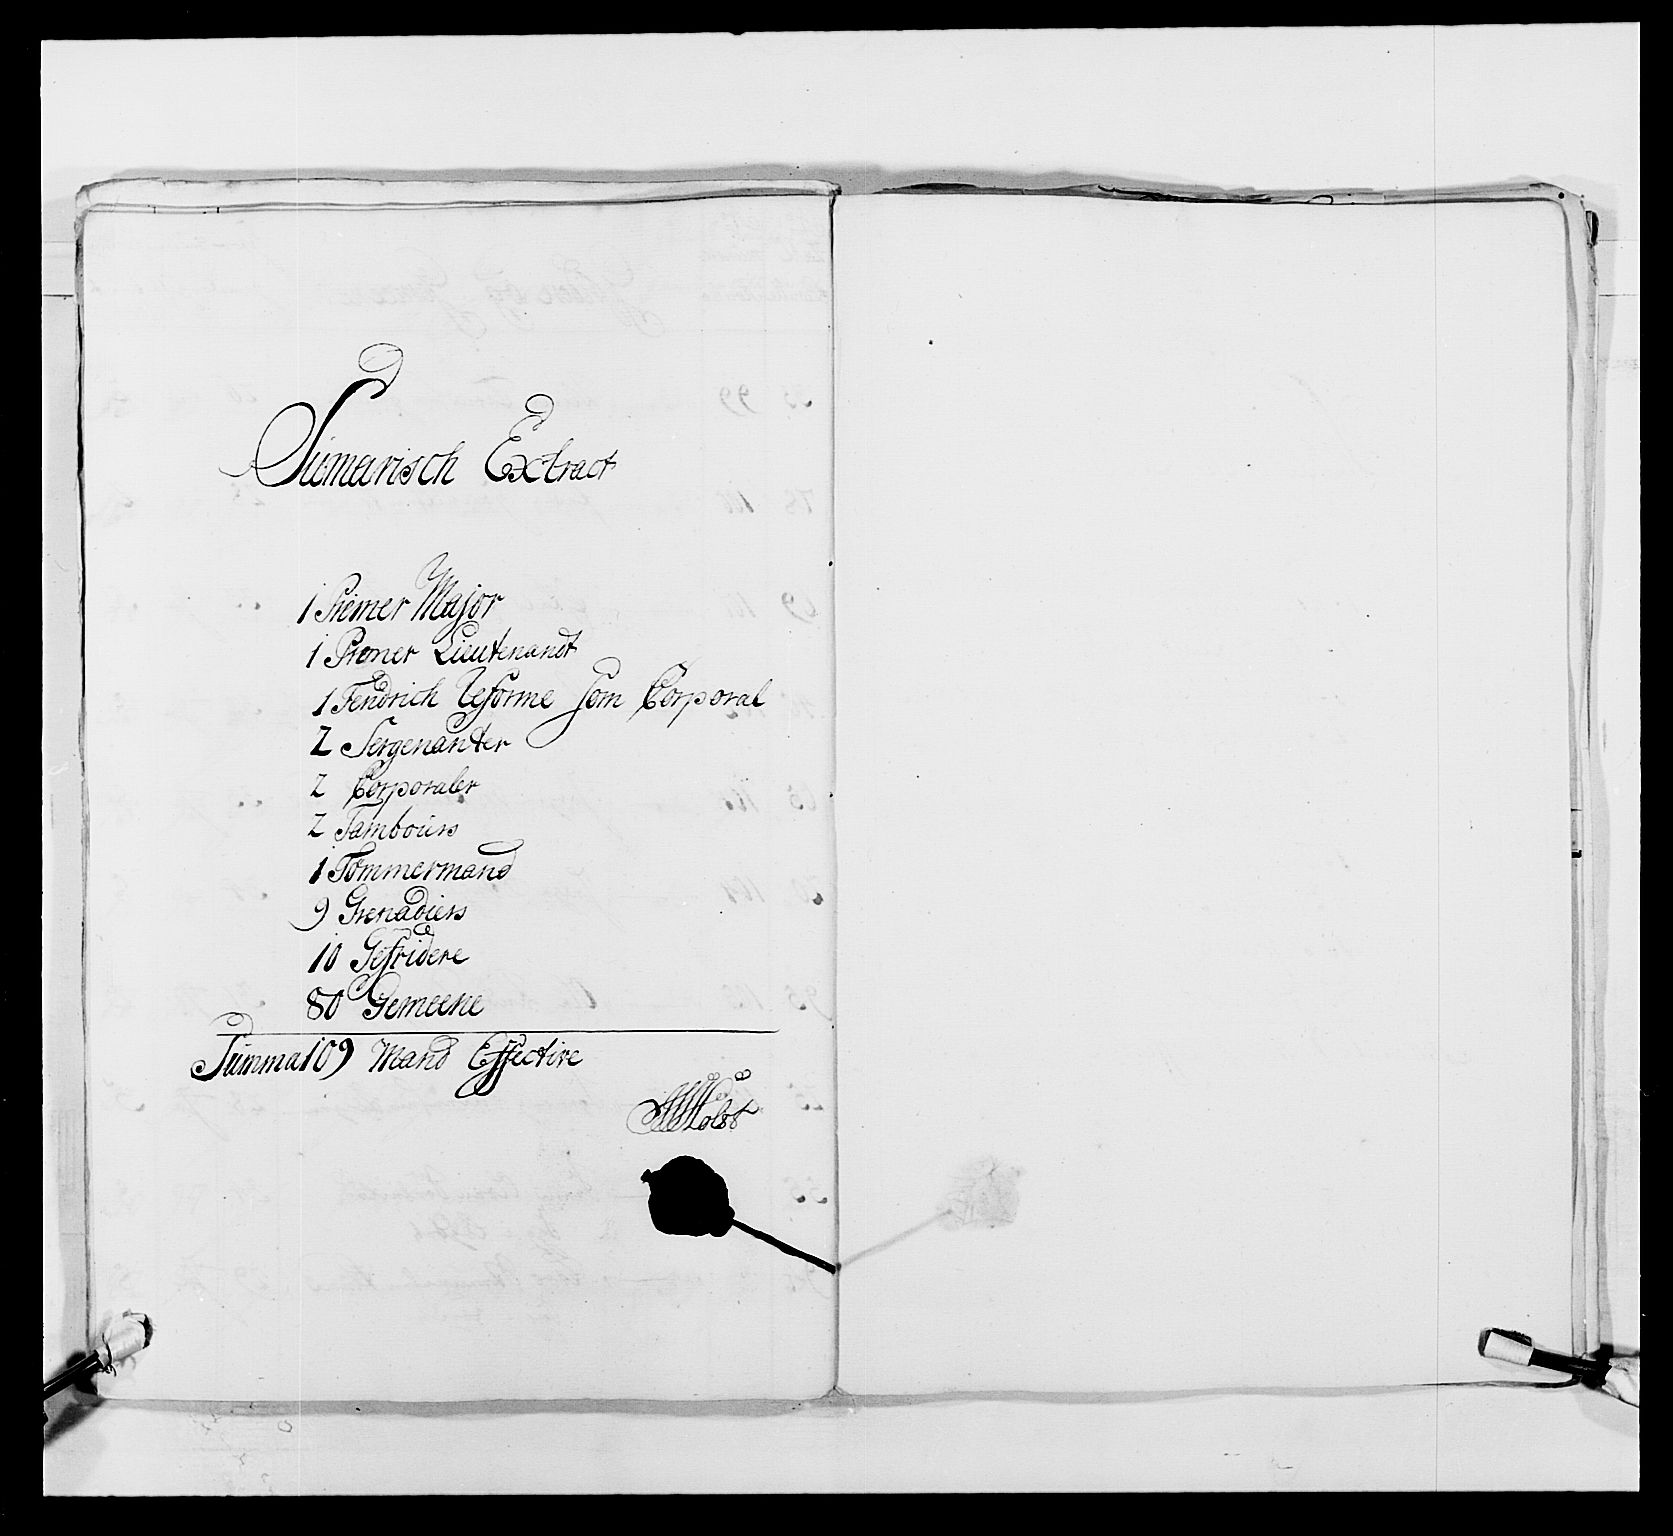 Sumarisch Extract
1 Premer Major
1 Premer Lieutenandt
1 Fendrich Reforme som Corporal
2 Sergenanter
2 Corporaler
2 Tambours
1 Tømmermand
9 Grenadiers
10 Gefridere
80 Gemeene
Summa 109 Mand Effective
Holst